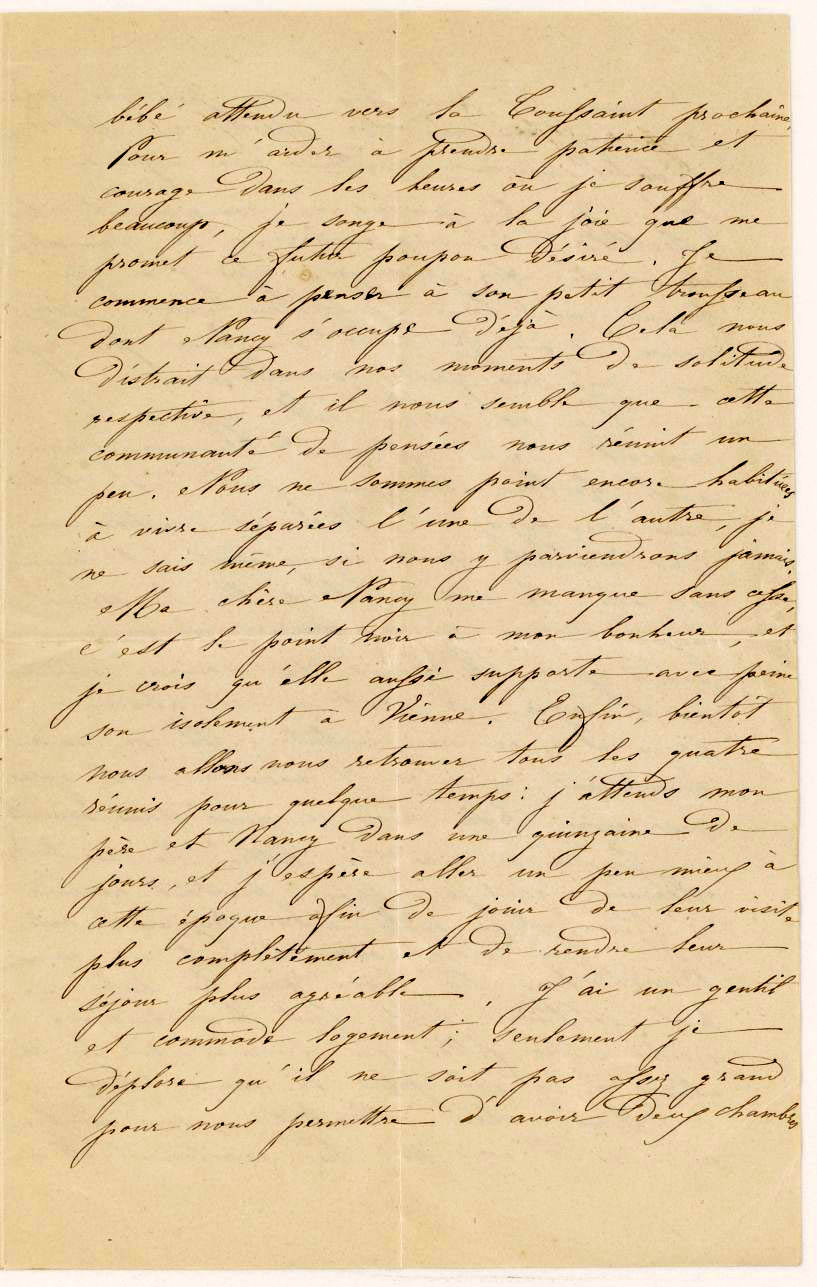 bébé attendu vers la Toussaint prochaine.
Pour m'aider à prendre patience et
courage dans les heures où je souffre
beaucoup, je songe à la joie que me
promet ce futur poupon désiré. Je
commence à penser à son petit trousseau
dont Nancy s'occupe déjà. Cela nous
distrait dans nos moments de solitude
respective, et il nous semble que cette
communauté de pensées nous réunit un
peu. Nous ne sommes point encore habituées
à vivre séparées l'une de l'autre, je
ne sais même, si nous y parviendrons jamais.
Ma chère Nancy me manque sans cesse,
c'est le point noir à mon bonheur, et
je crois qu'elle aussi supporte avec peine
son isolement à Vienne. Enfin, bientôt
nous allons nous retrouver tous les quatre
réunis pour quelque temps: j'attends mon
père et Nancy dans une quinzaine de
jours, et j'espère aller un peu mieux à
cette époque afin de jouir de leur visite
plus complètement et de rendre leur
séjour plus agréable. J'ai un gentil
et commode logement; seulement je
déplore qu'il ne soit pas assez grand
pour nous permettre d'avoir deux chambres